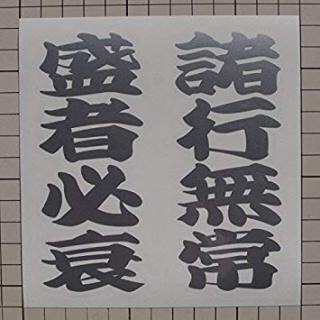 諸行無常
盛者必衰